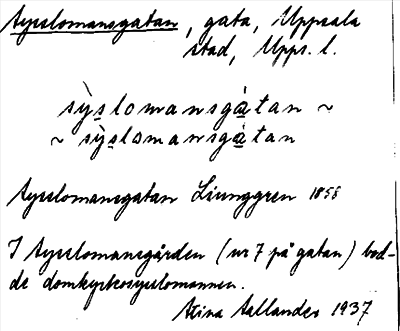 Sysslomansgatan, gata, Uppsala
stad, Upps. l.
sỳslomansgàtan ~
~ sỳslomansgàtan
Sysslomansgatan Ljunggren 1858
I Sysslomansgården (nr 7 på gatan) bod-
de domkyrkosysslomannen.
Stina 1937